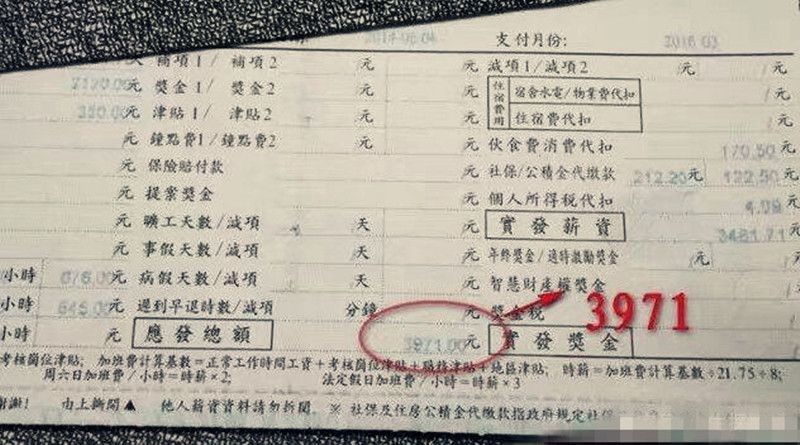 2014.06.04 支付月份: 2016.03
補項1/ 補項2 元 元 減項1/減項2 元 元
2120.00元 獎金1/ 獎金2 元 元 住宿費用 宿舍水電/物業費代扣 元
350.00元 津貼1/ 津貼2 元 元 住宿費代扣 元
元 鐘點費1/鐘點費2 元 元 伙食費消費代扣 170.50元
元 保險賠付款 元 社保/公積金代繳款 212.20元 122.50元
元 提案獎金 元 個人所得稅代扣 4.09元
元 曠工天數/減項 天 元 實發薪資 3461.71元
元 事假天數/減項 天 元 年終獎金/適時激勵獎金 元
小時 676.00元 病假天數/減項 天 元 智慧財產權獎金 元
小時 645.00元 遲到早退時數/減項 分鐘 元 獎金稅 元
小時 元 應發總額 3971.00元 實發獎金 元
3971
考核崗位津貼; 加班費計算基數=正常工作時間工資+考核崗位津貼+職務津貼+地區津貼; 時薪=加班費計算基數÷21.75÷8;
周六日加班費/小時=時薪×2; 法定假日加班費/小時=時薪×3
謝謝! 由上撕開▲ 他人薪資資料請勿折閱. ※ 社保及住房公積金代繳款指政府規定社保